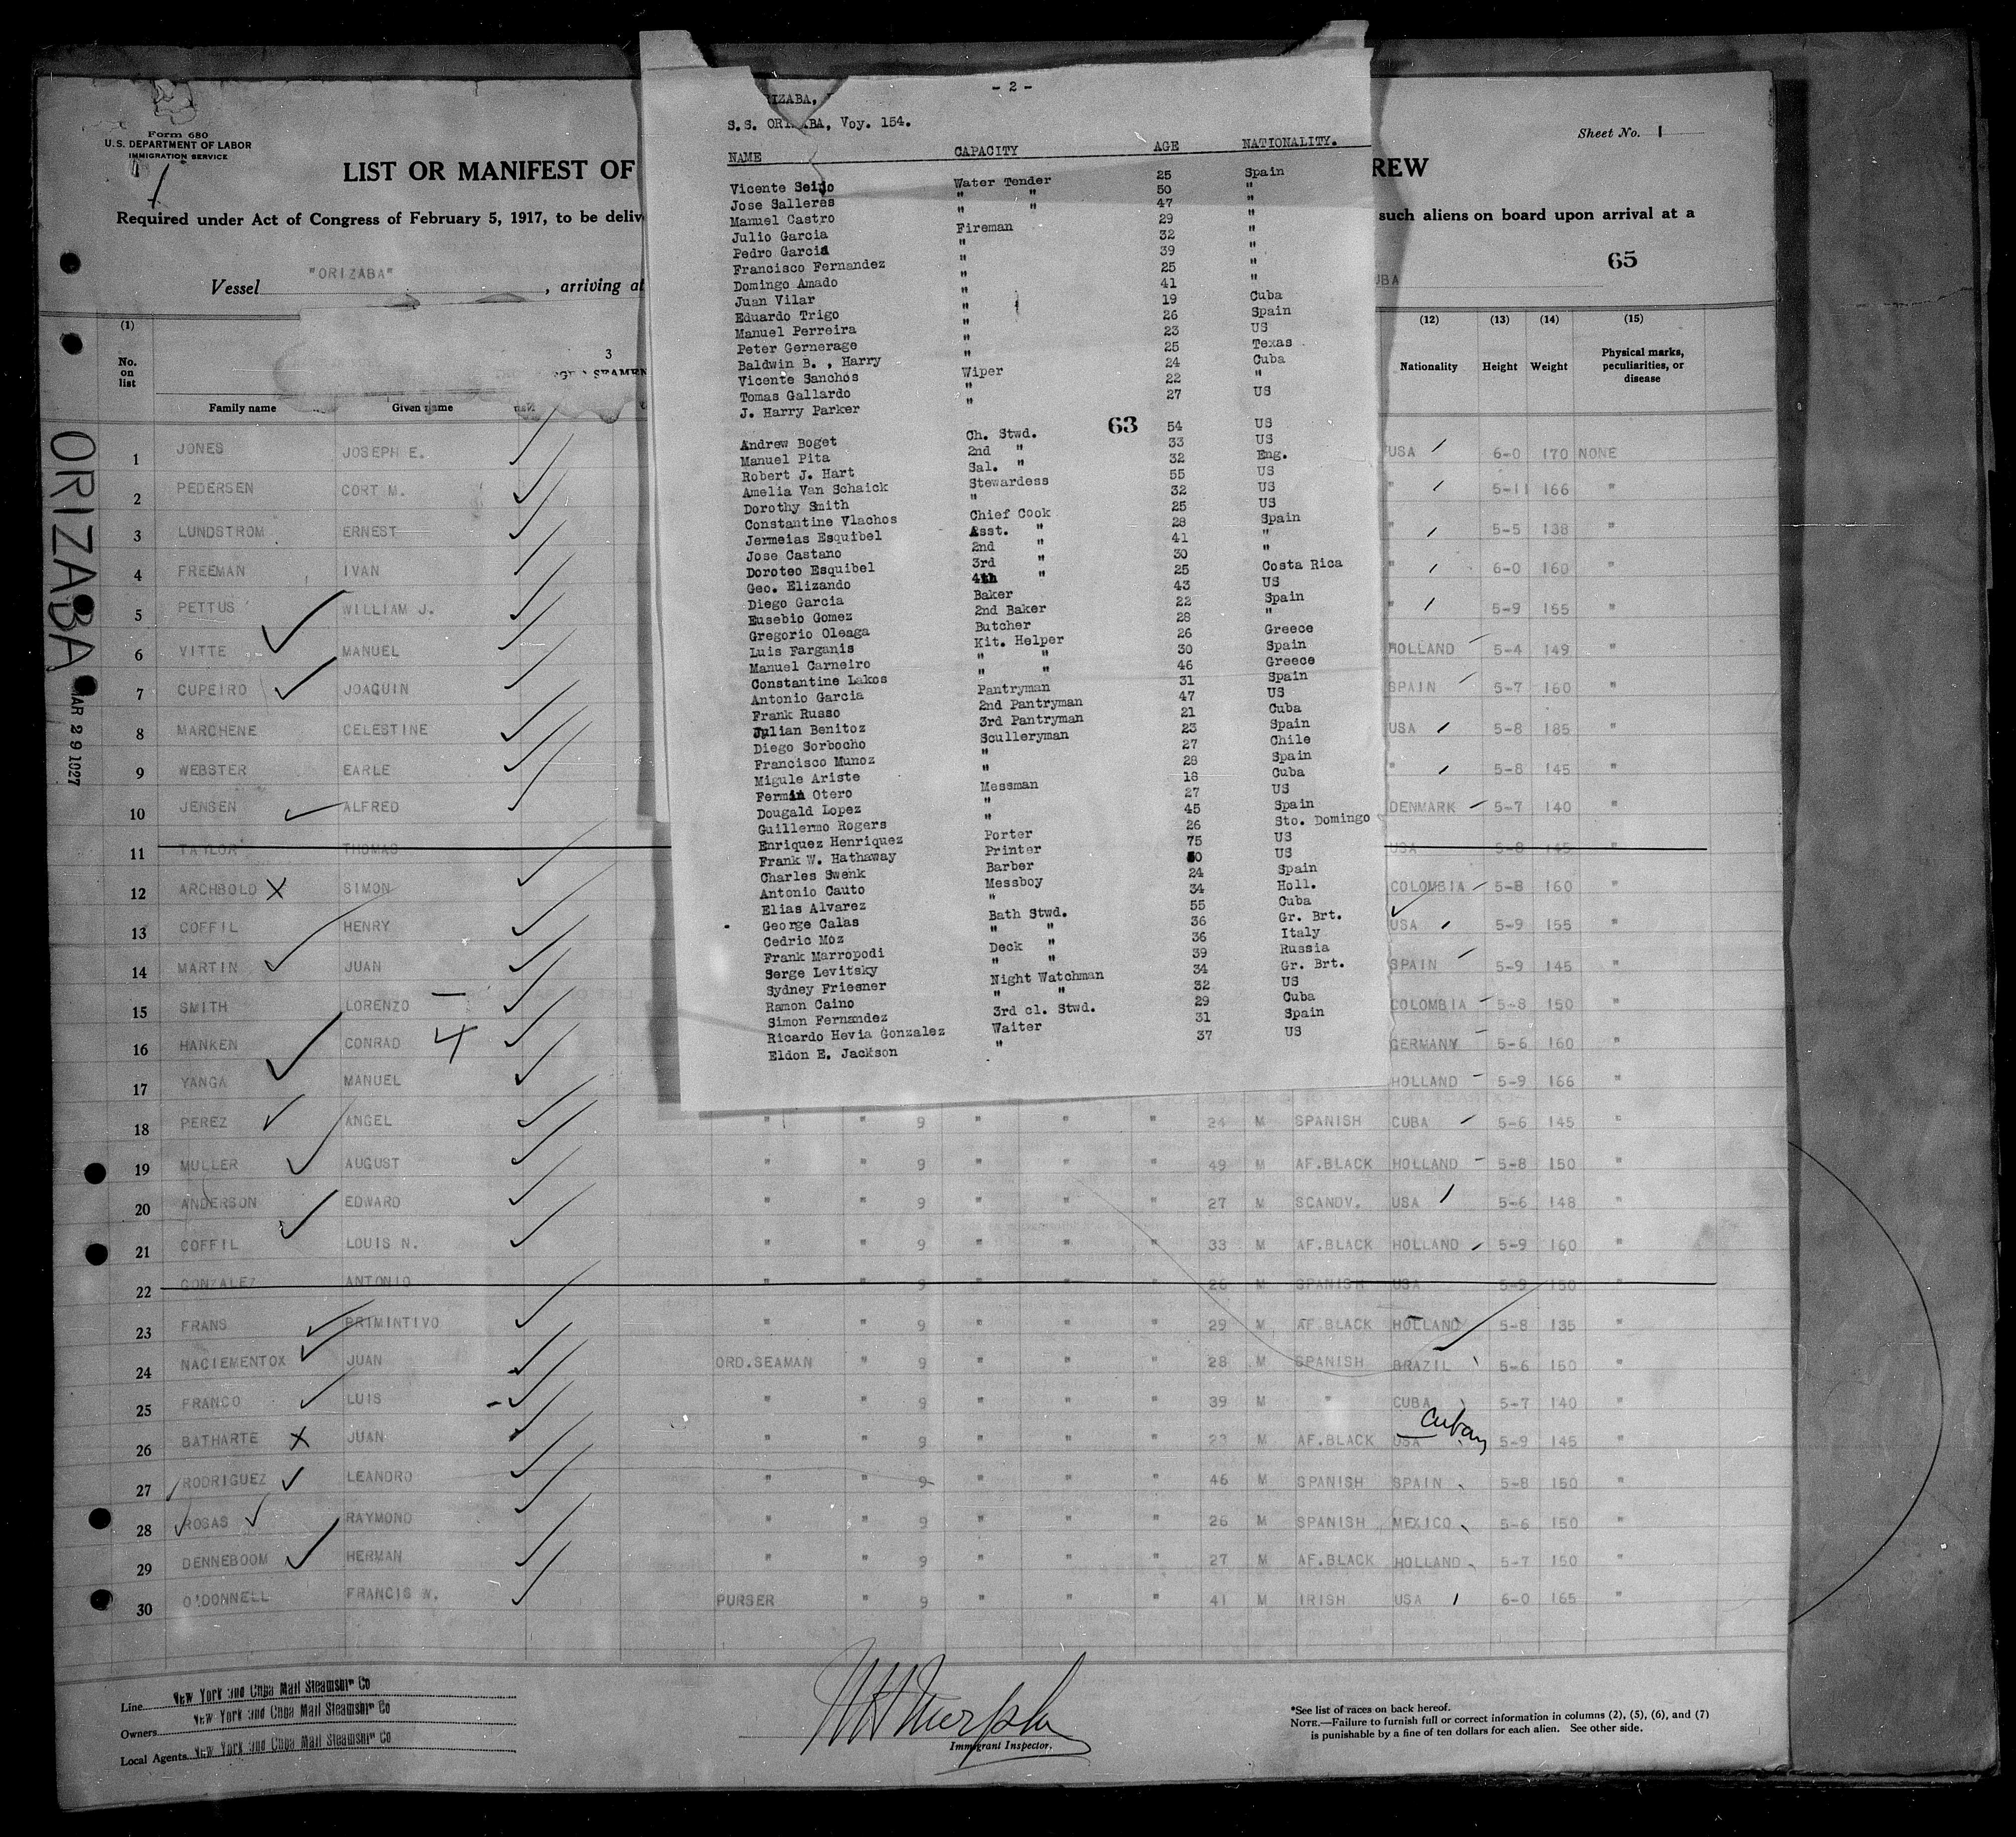 Form 680
U.S. DEPARTMENT OF LABOR
IMMIGRATION SERVICE
Sheet No. 1
LIST OR MANIFEST OF
REW
Required under Act of Congress of February 5, 1917, to be deliv
such aliens on board upon arrival at a
65
Vessel "ORIZABA", arriving at
UBA
- 2 -
RIZABA,
S.S. ORIZABA, Voy. 154.
NAME CAPACITY AGE NATIONALITY.
Vicente Seijo Water Tender 25 Spain
Jose Salleres " " 50 "
Manuel Castro " " 47 "
Julio Garcia Fireman 29 "
Pedro Garcia " 32 "
Francisco Fernandez " 39 "
Domingo Amado " 25 "
Juan Vilar " 41 "
Eduardo Trigo " 19 Cuba
Manuel Perreira " 26 Spain
Peter Gernerage " 23 US
Baldwin B. , Harry " 25 Texas
Vicente Sanchos Wiper 24 Cuba
Tomas Gallardo " 22 "
J. Harry Parker " 27 US
63
Andrew Boget Ch. Stwd. 54 US
Manuel Pita 2nd " 33 US
Robert J. Hart Sal. " 32 Eng.
Amelia Van Schaick Stewardess 55 US
Dorothy Smith " 32 US
Constantine Vlachos Chief Cook 25 US
Jermeias Esquibel Asst. " 28 Spain
Jose Castano 2nd " 41 "
Doroteo Esquibel 3rd " 30 "
Geo. Elizando 4th " 25 Costa Rica
Diego Garcia Baker 43 US
Eusebio Gomez 2nd Baker 22 Spain
Gregorio Oleaga Butcher 28 "
Luis Farganis Kit. Helper 26 Greece
Manuel Carneiro " " 30 Spain
Constantine Lakos " " 46 Greece
Antonio Garcia Pantryman 31 Spain
Frank Russo 2nd Pantryman 47 US
Julian Benitoz 3rd Pantryman 21 Cuba
Diego Sorbocho Sculleryman 23 Spain
Francisco Munoz " 27 Chile
Migule Ariste " 28 Spain
Fermin Otero Messman 18 Cuba
Dougald Lopez " 27 US
Guillermo Rogers " 45 Spain
Enriquez Henriquez Porter 26 Sto. Domingo
Frank W. Hathaway Printer 75 US
Charles Swenk Barber 50 US
Antonio Cauto Messboy 24 Spain
Elias Alvarez " 34 Holl.
George Calas Bath Stwd. 55 Cuba
Cedric Moz " " 36 Gr. Brt.
Frank Marropodi Deck " 36 Italy
Serge Levitsky " " 39 Russia
Sydney Friesner Night Watchman 34 Gr. Brt.
Ramon Caino " " 32 US
Simon Fernandez 3rd cl. Stwd. 29 Cuba
Ricardo Hevia Gonzalez Waiter 31 Spain
Eldon E. Jackson " 37 US
(1) 3 (12) (13) (14) (15)
No. on list Family name Given name Nationality Height Weight Physical marks, peculiarities, or disease
1 JONES JOSEPH E. USA 6-0 170 NONE
2 PEDERSEN CORT M. " 5-11 166 "
3 LUNDSTROM ERNEST " 5-5 138 "
4 FREEMAN IVAN " 6-0 160 "
5 PETTUS WILLIAM J. " 5-9 155 "
6 VITTE MANUEL HOLLAND 5-4 149 "
7 CUPEIRO JOAQUIN SPAIN 5-7 160 "
8 MARCHENE CELESTINE USA 5-8 185 "
9 WEBSTER EARLE " 5-8 145 "
10 JENSEN ALFRED DENMARK 5-7 140 "
11 TAYLOR THOMAS USA 5-8 145 "
12 ARCHBOLD X SIMON COLOMBIA 5-8 160 "
13 COFFIL HENRY USA 5-9 155 "
14 MARTIN JUAN SPAIN 5-9 145 "
15 SMITH LORENZO COLOMBIA 5-8 150 "
16 HANKEN CONRAD GERMANY 5-6 160 "
17 YANGA MANUEL HOLLAND 5-9 166 "
18 PEREZ ANGEL " " 9 " " " 24 M SPANISH CUBA 5-6 145 "
19 MULLER AUGUST " " 9 " " " 49 M AF.BLACK HOLLAND 5-8 150 "
20 ANDERSON EDWARD " " 9 " " " 27 M SCANDV. USA 5-6 148 "
21 COFFIL LOUIS N. " " 9 " " " 33 M AF.BLACK HOLLAND 5-9 160 "
22 GONZALEZ ANTONIO " " 9 " " " 26 M SPANISH USA 5-9 150 "
23 FRANS PRIMINTIVO " " 9 " " " 29 M AF.BLACK HOLLAND 5-8 135 "
24 NACIEMENTOX JUAN ORD.SEAMAN " 9 " " " 28 M SPANISH BRAZIL 5-6 150 "
25 FRANCO LUIS " " 9 " " " 39 M " CUBA 5-7 140 "
26 BATHARTE X JUAN " " 9 " " " 23 M AF.BLACK USA Cuban 5-9 145 "
27 RODRIGUEZ LEANDRO " " 9 " " " 46 M SPANISH SPAIN 5-8 150 "
28 ROSAS RAYMOND " " 9 " " " 26 M SPANISH MEXICO 5-6 150 "
29 DENNEBOOM HERMAN " " 9 " " " 27 M AF.BLACK HOLLAND 5-7 150 "
30 O'DONNELL FRANCIS W. PURSER " 9 " " " 41 M IRISH USA 6-0 165 "
ORIZABA
MAR 29 1927
Line New York and Cuba Mail Steamship Co
Owners New York and Cuba Mail Steamship Co
Local Agents New York and Cuba Mail Steamship Co
Immigrant Inspector.
*See list of races on back hereof.
NOTE.—Failure to furnish full or correct information in columns (2), (5), (6), and (7)
is punishable by a fine of ten dollars for each alien. See other side.